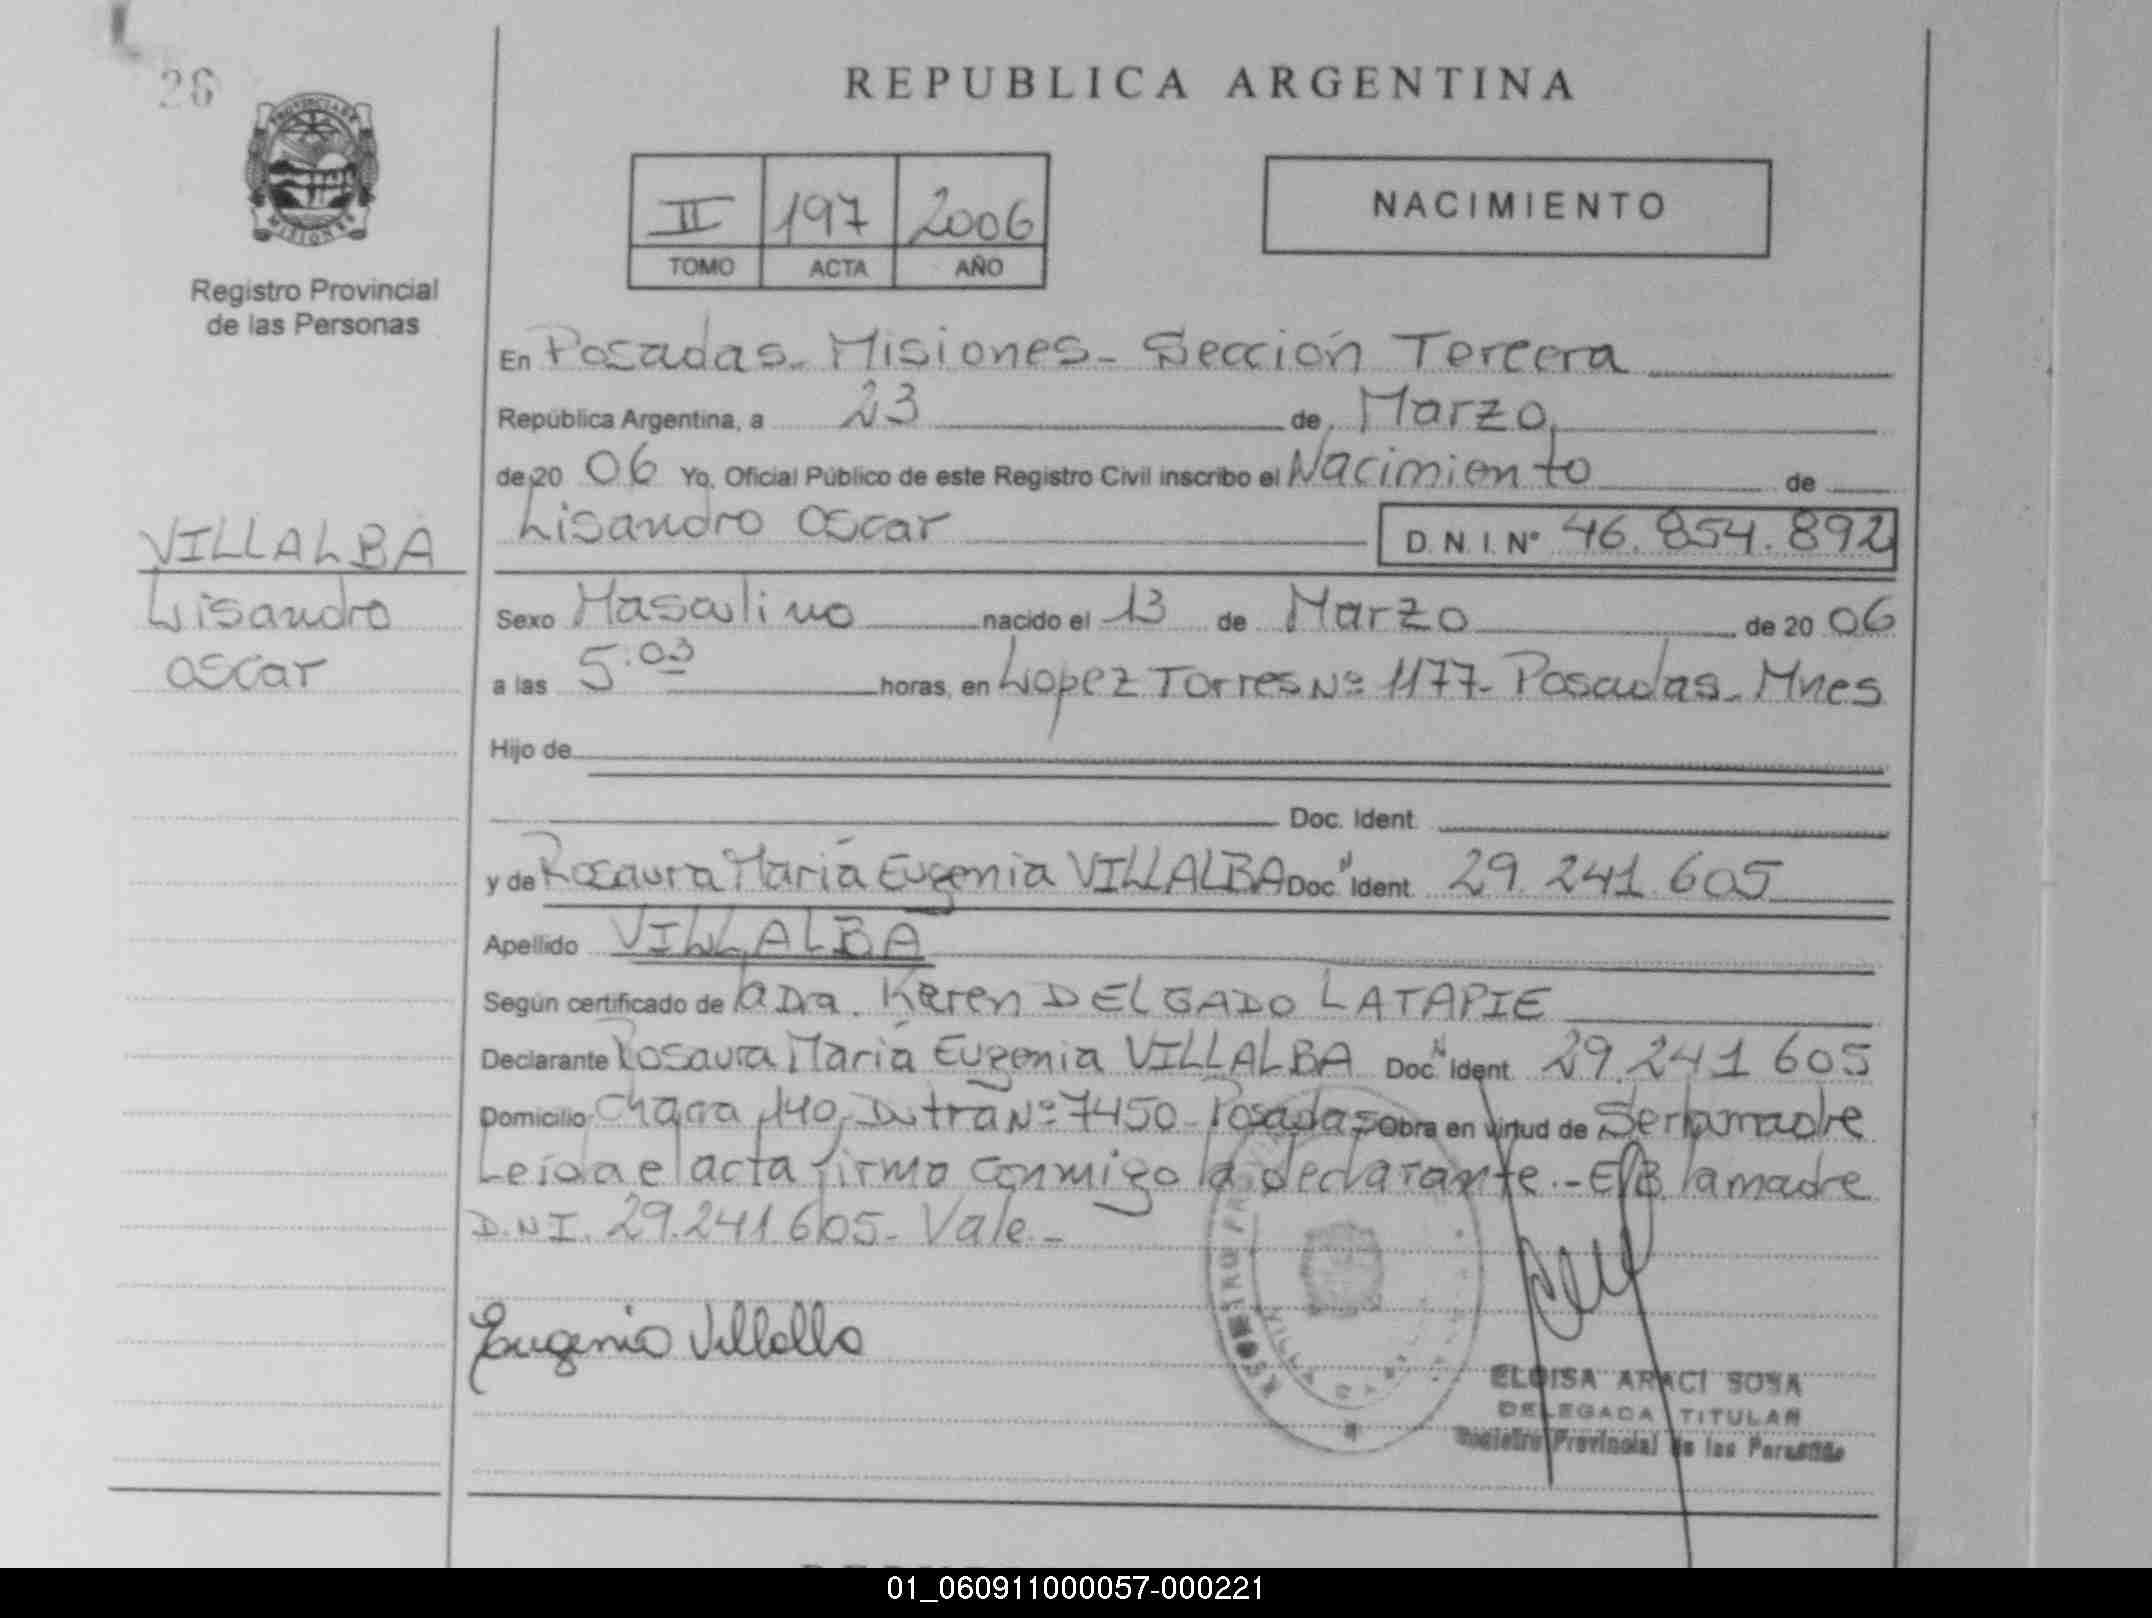 26
REPUBLICA ARGENTINA
PROVINCIA DE
MISIONES
Registro Provincial
de las Personas
II 197 2006
TOMO ACTA AÑO
NACIMIENTO
En Posadas - Misiones - Sección Tercera
República Argentina, a 23 de Marzo
de 20 06 Yo, Oficial Público de este Registro Civil inscribo el Nacimiento de
Lisandro Oscar D.N.I. Nº 46.854.892
VILLALBA
Lisandro
Oscar
Sexo Masculino nacido el 13 de Marzo de 20 06
a las 5:03 horas, en Lopez Torres Nº 1177 - Posadas - Mnes
Hijo de
Doc. Ident.
y de Rosaura María Eugenia VILLALBA Doc. Ident. 29.241.605
Apellido VILLALBA
Según certificado de la Dra. Karen DELGADO LATAPIE
Declarante Rosaura María Eugenia VILLALBA Doc. Ident. 29.241.605
Domicilio Chacra 140, Nº 7450 - Posadas Obra en virtud de Ser la madre
Leída el acta firma conmigo la declarante.- la madre
D.N.I. 29.241.605 - Vale.-
Eugenia Villalba
REGISTRO
ELOISA ARACI SOSA
DELEGADA TITULAR
Registro Provincial de las Personas
01_060911000057-000221